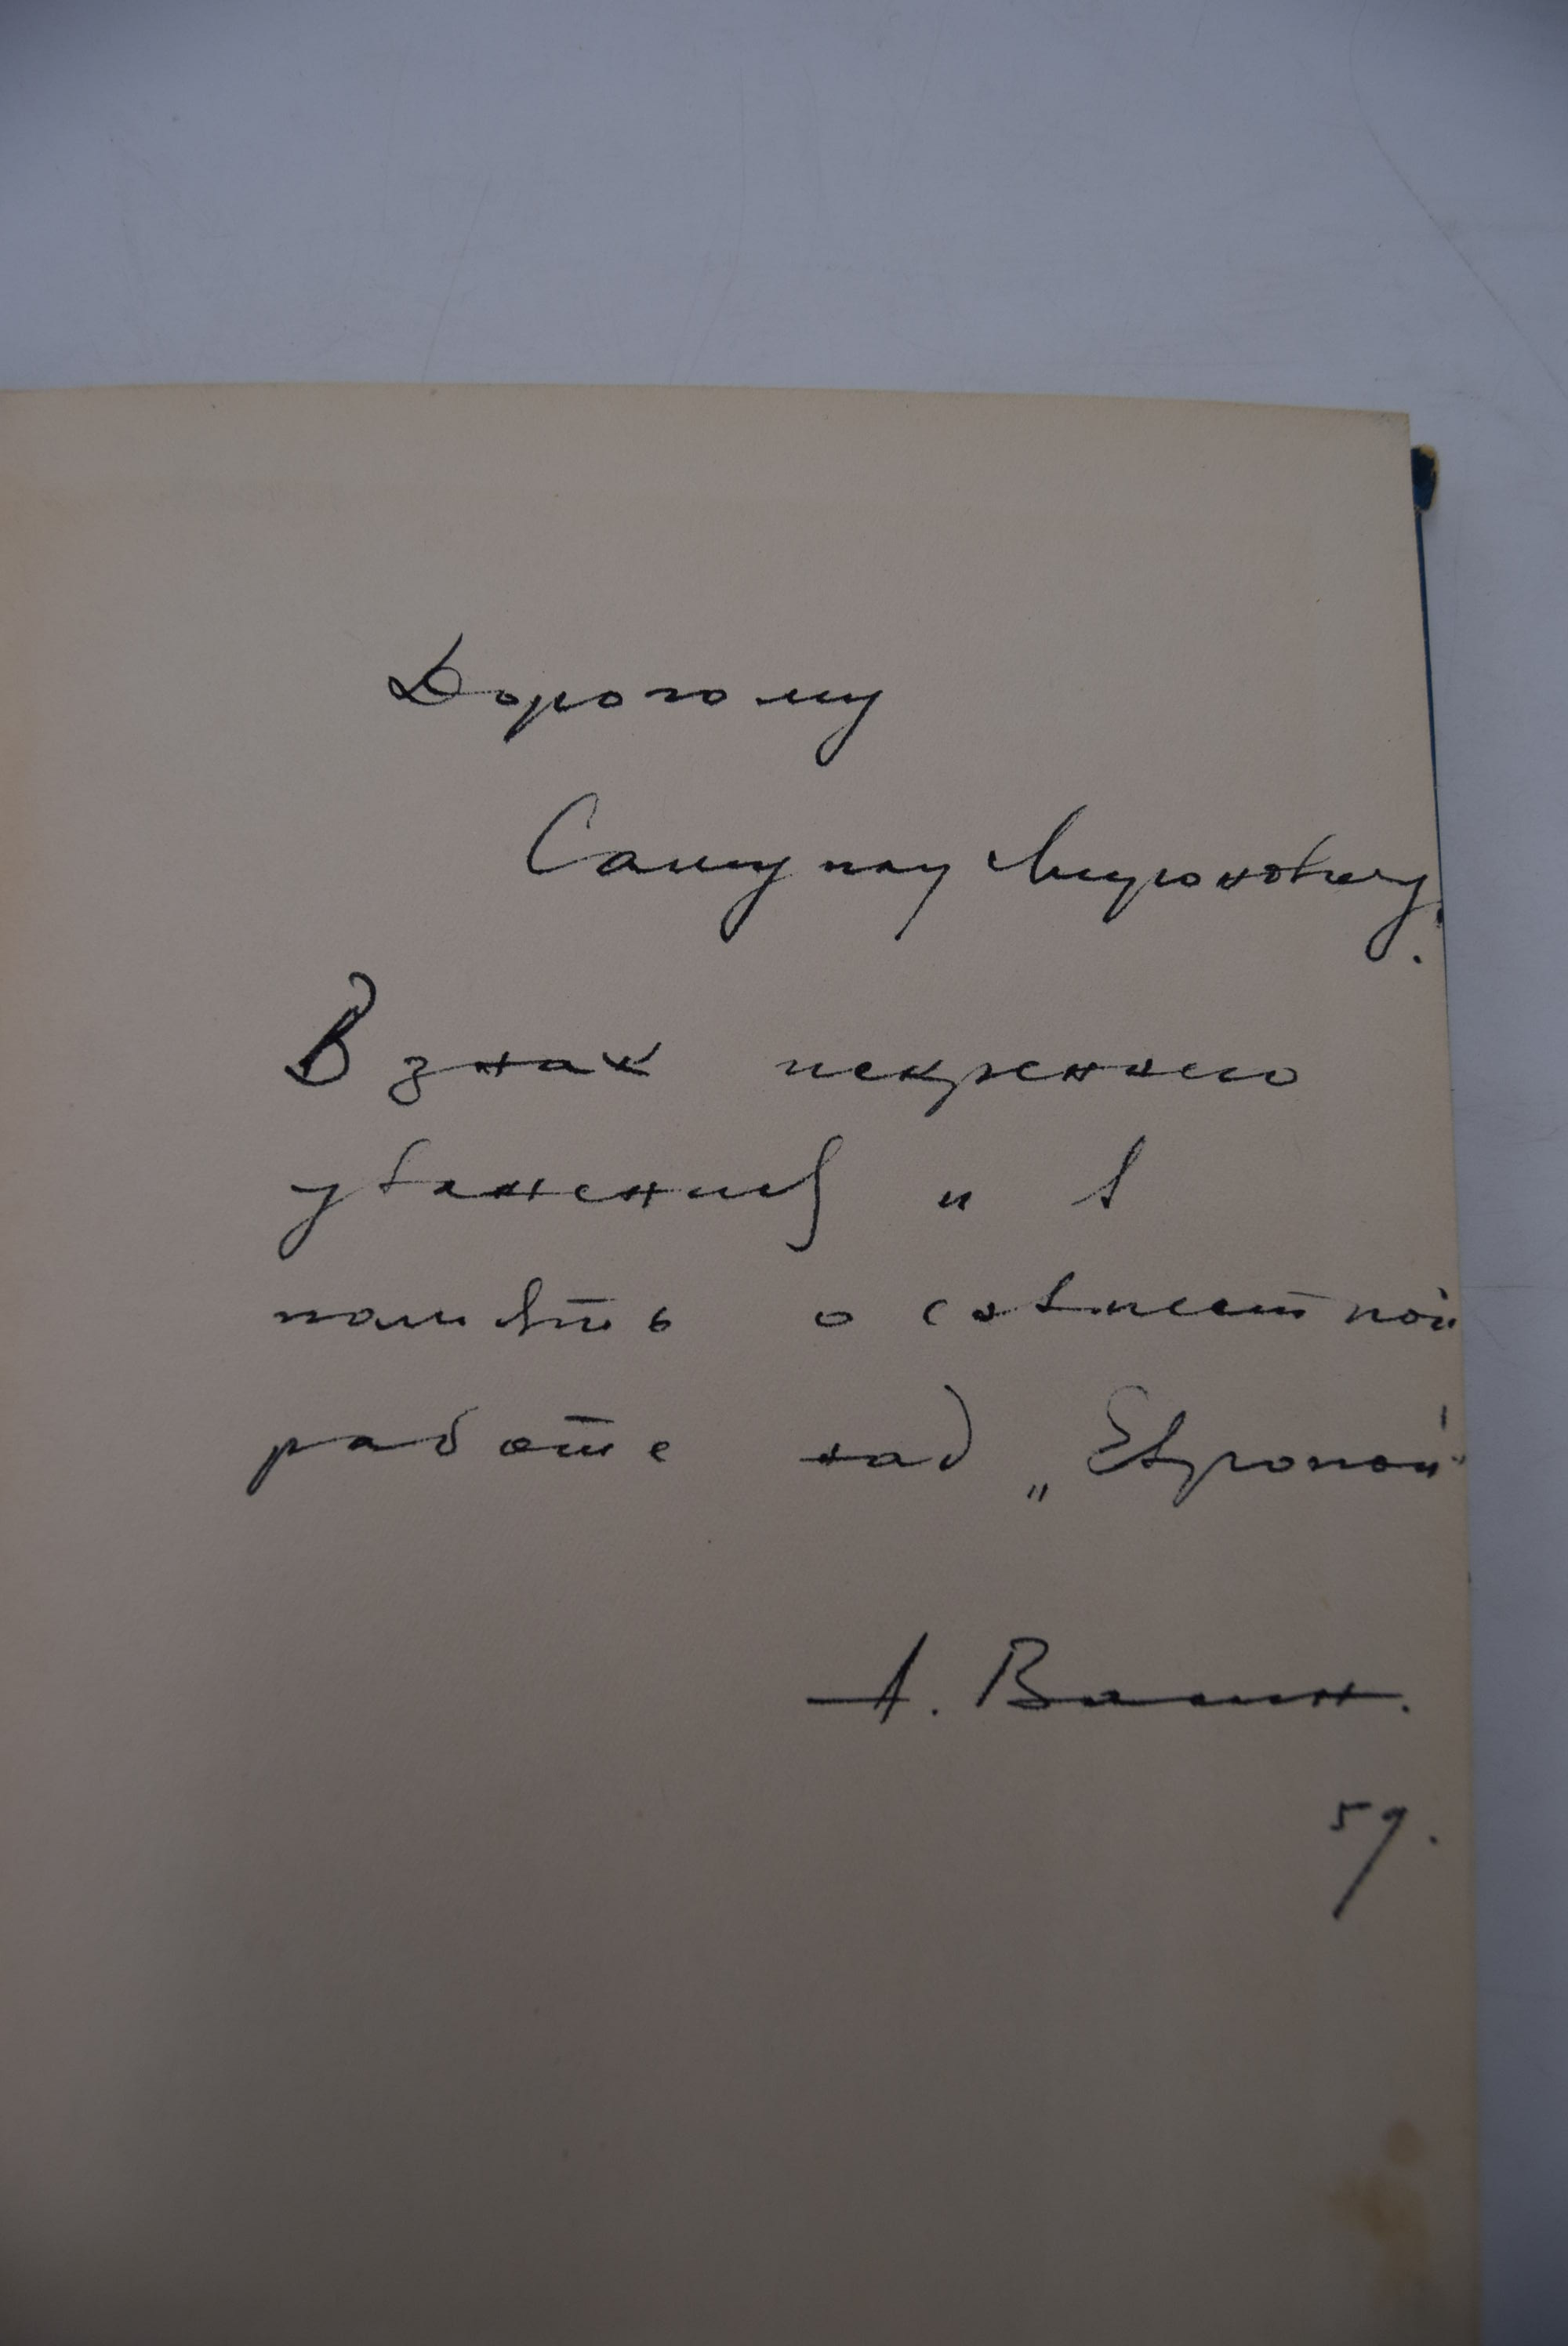 Дорогому
Самуилу Мироновичу.
В знак искреннего
уважения и в
память о совместной
работе над „Европой“
А. Ваксин.
59.